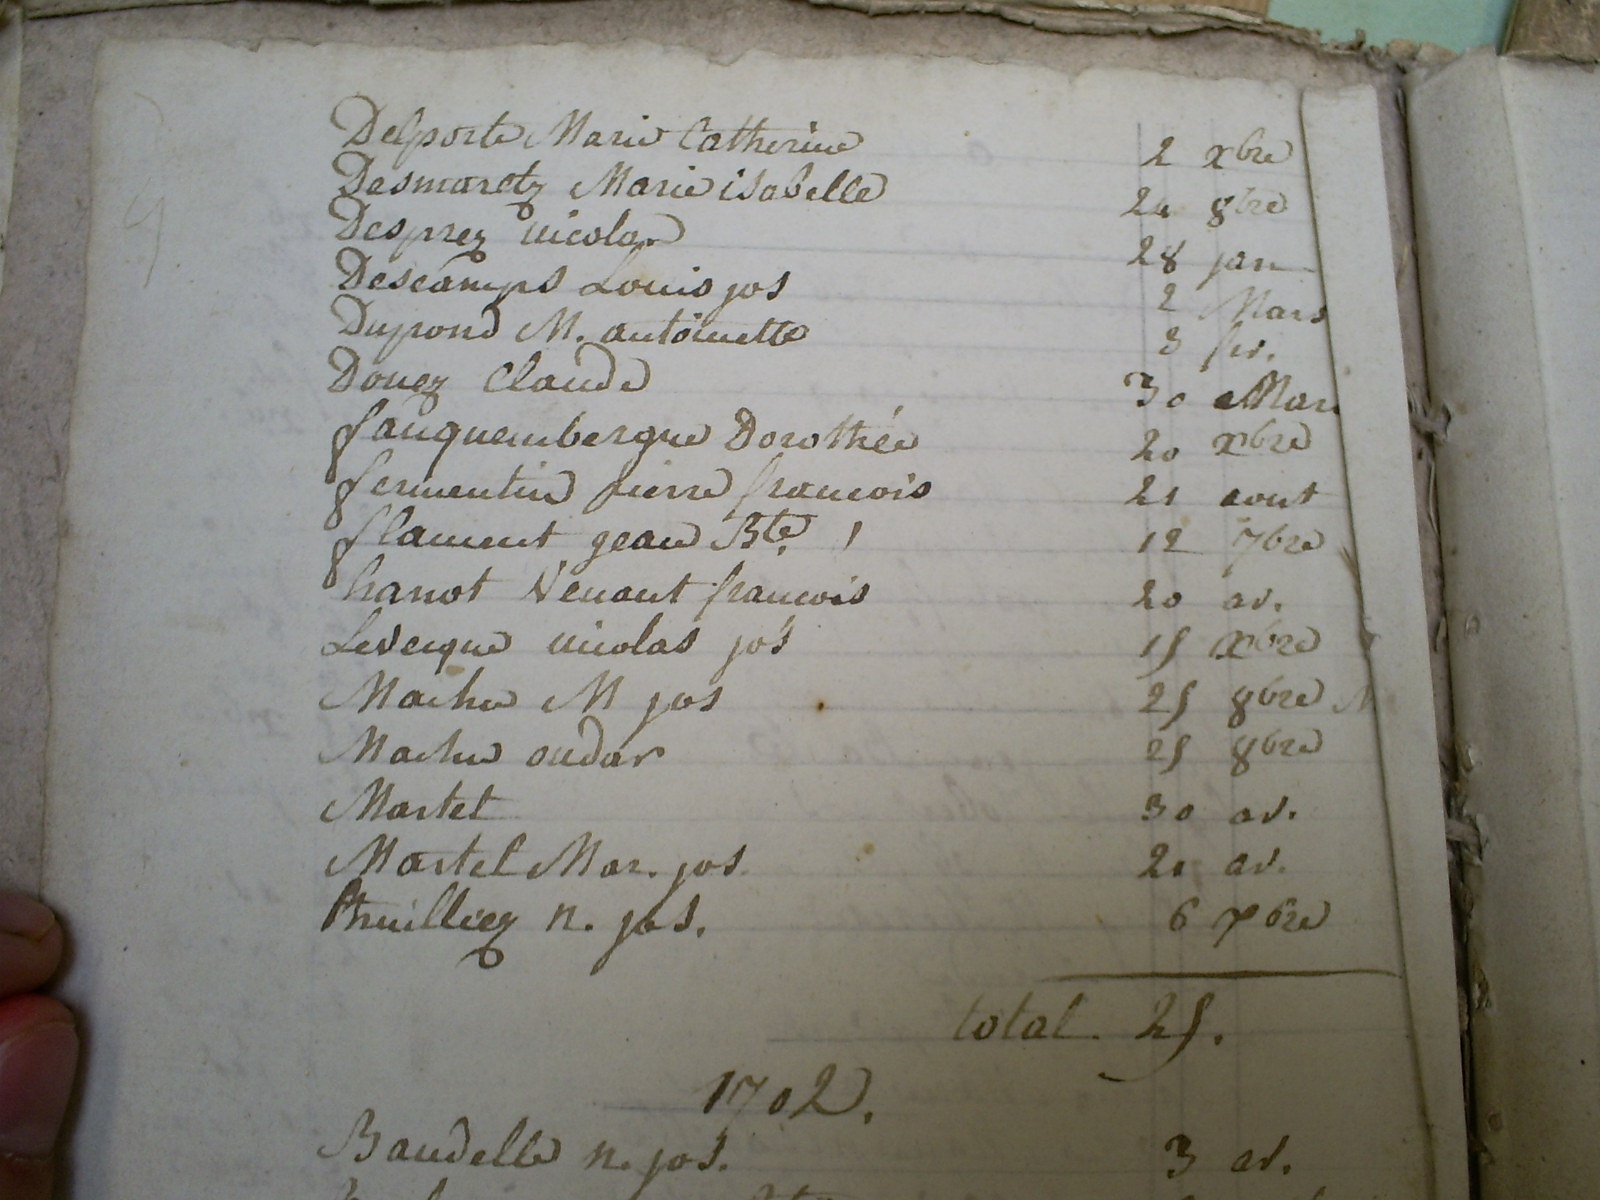 Delporte Marie Catherine 2 xbre
Desmaretz Marie isabelle 24 8bre
Desprez nicolas 28 jan
Descamps Louis jos 2 Mars
Dupond M. antoinette 8 fev.
Douez Claude 30 Mars
fauquembergue Dorothée 20 xbre
fermentin pierre francois 21 aout
flament jean Bte. 12 7bre
hanot Venant francois 20 av.
Levecque nicolas jos 15 xbre
Machu M jos 25 8bre
Machu oudar 25 8bre
Martel 30 av.
Martel Mar. jos. 21 av.
thuilliez n. jos. 6 7bre
total 25.
1702.
Baudelle n. jos. 3 av.